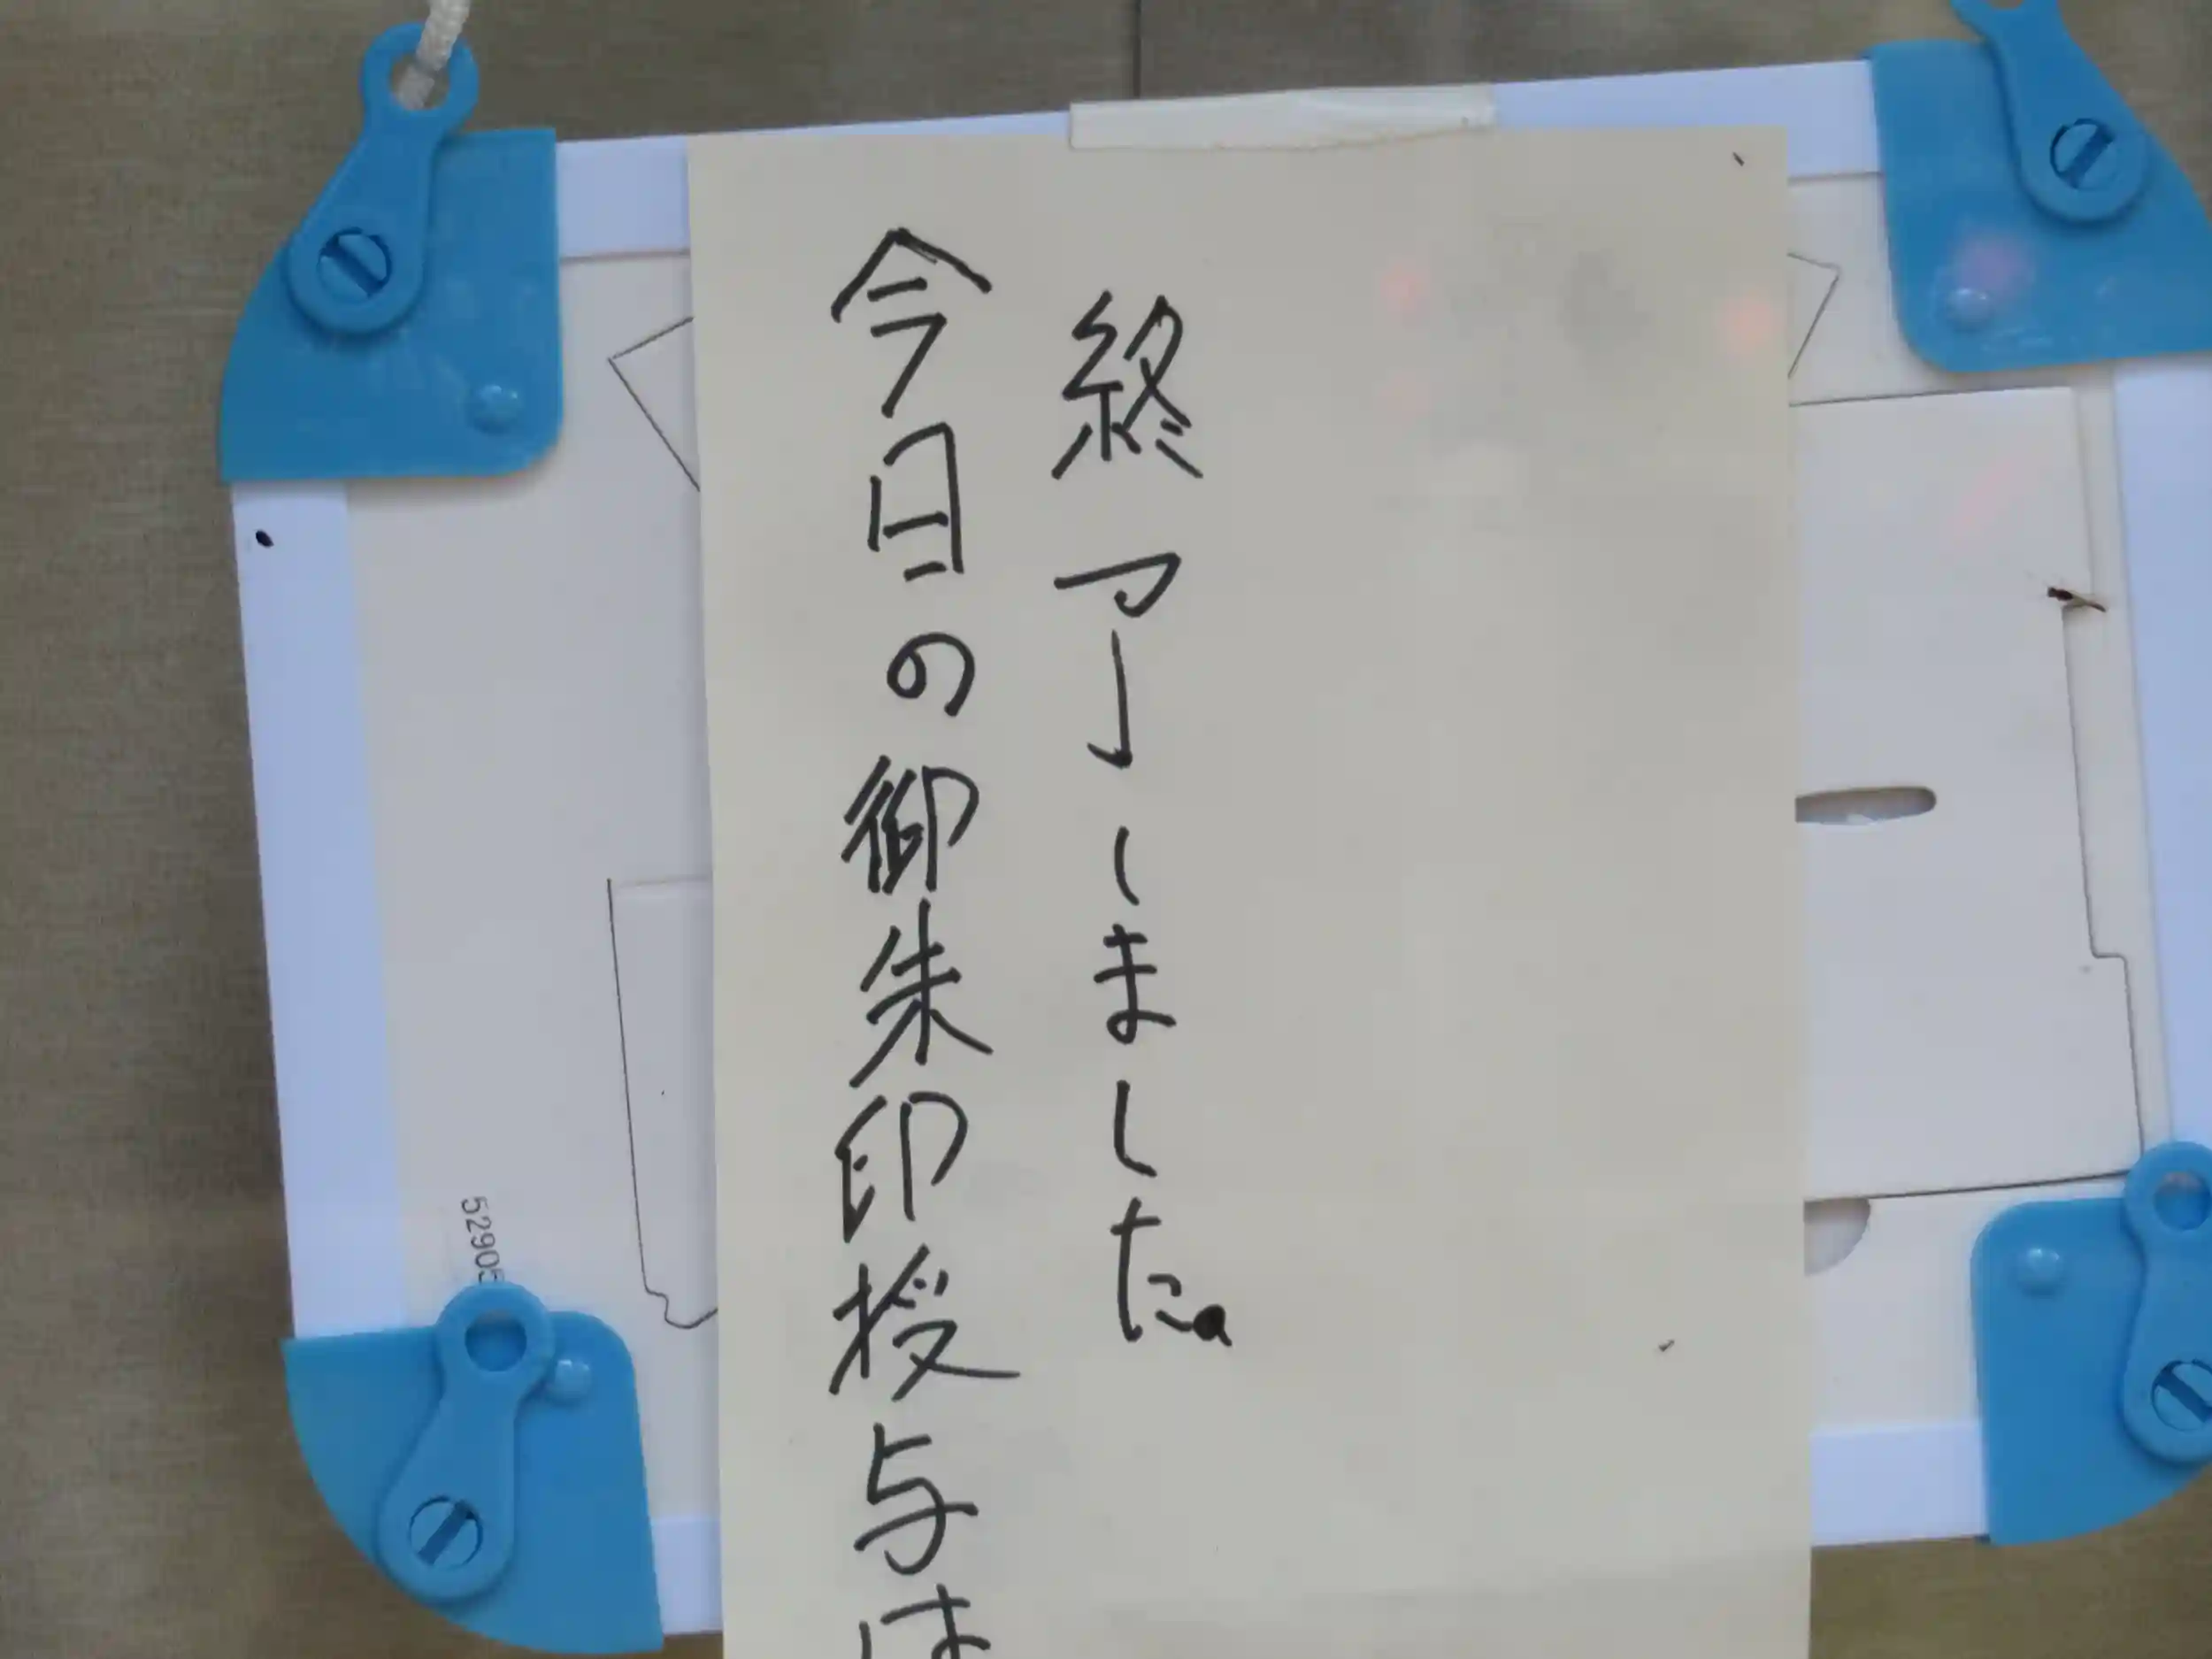 今日の御朱印授与は
終了しました。
52905